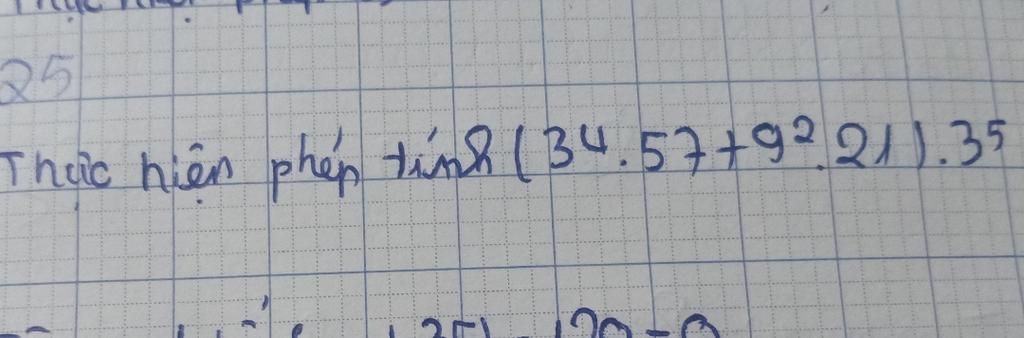 25
Thực hiện phép tính (3⁴.57+9².21).3⁵